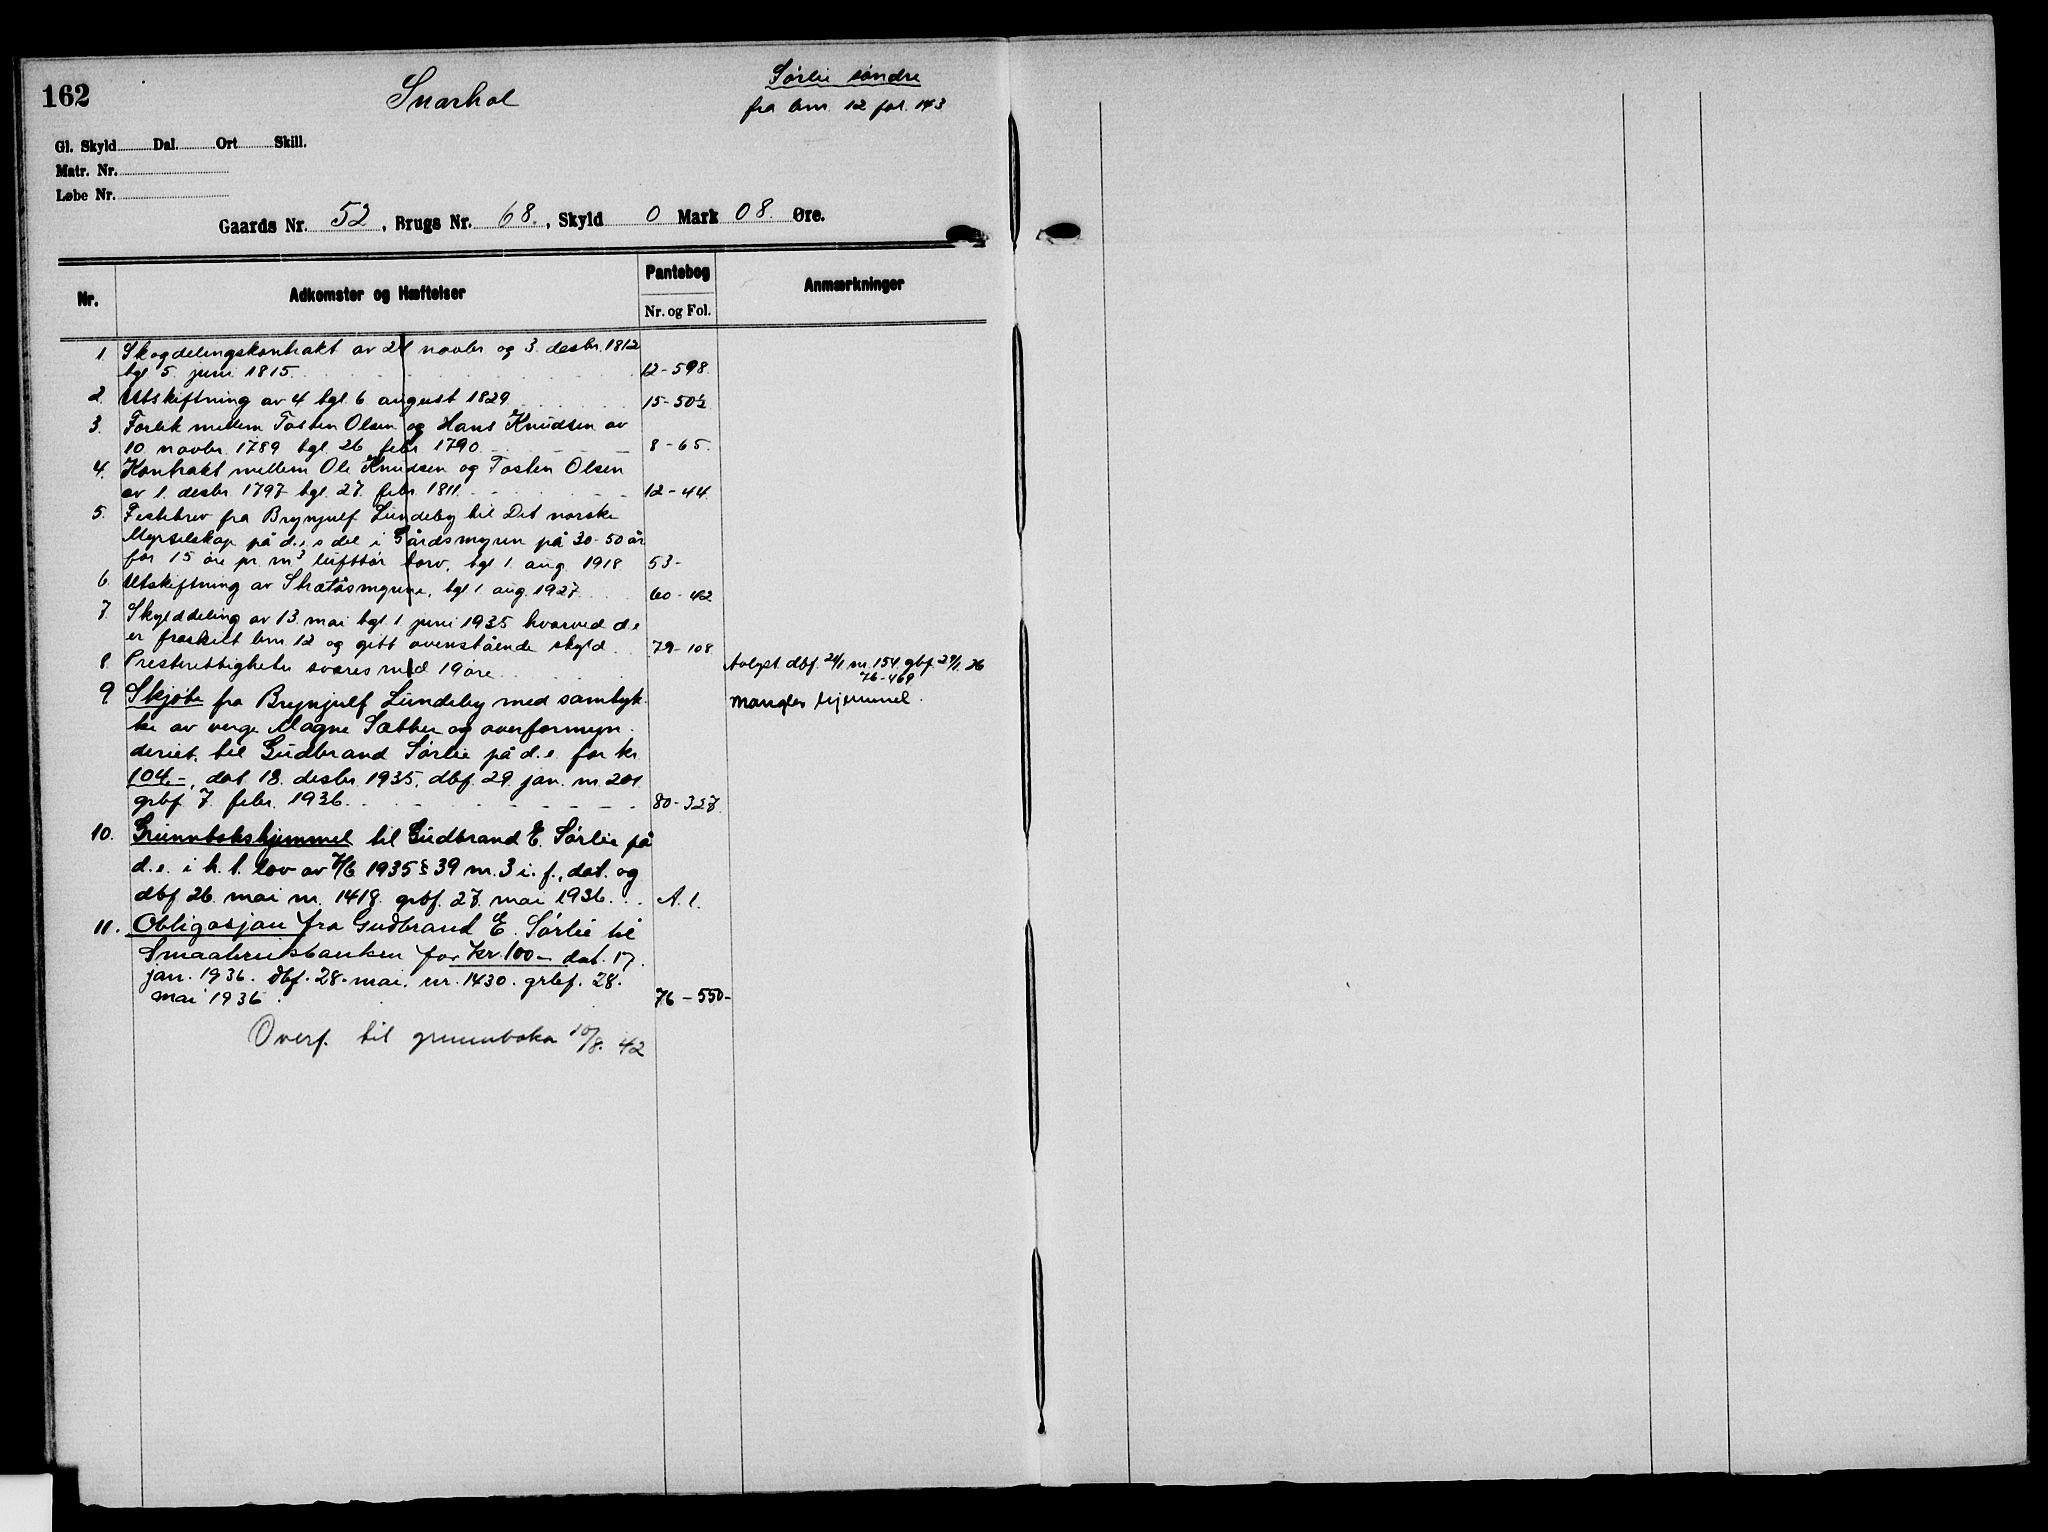 162
Snarhol
Sørlie søndre
fra brn. 12 fol. 143
Gl. Skyld Dal. Ort Skill.
Matr. Nr.
Løbe Nr.
Gaards Nr. 52, Brugs Nr. 68., Skyld 0 Mark 08. Øre.
Nr. Adkomster og Hæftelser Pantebog Anmærkninger
Nr. og Fol.
1. Skogdelingskontrakt av 21 novbr og 3. desbr. 1812
tgl 5. juni 1815. 12-598.
2. Utskiftning av 4 tgl 6 august 1829 15-502
3. Forlik mellem Tosten Olsen og Hans Knudsen av
10 novbr. 1789 tgl. 26 febr 1790 8-65.
4. Kontrakt mellem Ole Knudsen og Tosten Olsen
av 1. desbr 1797 tgl. 27. febr. 1811. 12-44
5. Festebrev fra Brynjulf Lundeby til Det norske
Myrselskap på d.e.s del i Gårdsmyren på 30-50 år
for 15 øre pr. m³ lufttør torv. tgl 1 aug. 1918 53-
6. Utskiftning av Skætåsmyrene, tgl 1 aug. 1927 60-42
7. Skylddeling av 13. mai tgl 1 juni 1935 hvorved d.e
er fraskilt brn 12 og gitt ovenstående skyld 79-108
8. Presterettigheter svares med 19 øre Avlyst dbf. 24/1 nr. 154. gbf. 29/1. 36
76-469
9 Skjøte fra Brynjulf Lundeby med samtyk- mangler hjemmel.
ke av verge Magne Sæther og overformyn-
deriet. til Gudbrand Sørlie på d.e. for kr
104.-, dat. 18. desbr. 1935, dbf. 29. jan. nr. 201
grbf 7. febr. 1936. 80-327
10. Grunnbokshjemmel til Gudbrand E. Sørlie på
d.e. i h. t. lov av 7/6 1935 § 39 nr. 3 i. f., dat. og
dbf 26. mai nr. 1418. grbf. 27. mai 1936. A. 1.
11. Obligasjon fra Gudbrand E. Sørlie til
Smaabruksbanken for kr. 100- dat. 17.
jan. 1936. dbf. 28. mai. nr. 1430. grbf. 28.
mai 1936. 76-550-
Overf. til grunnboka 10/8. 42